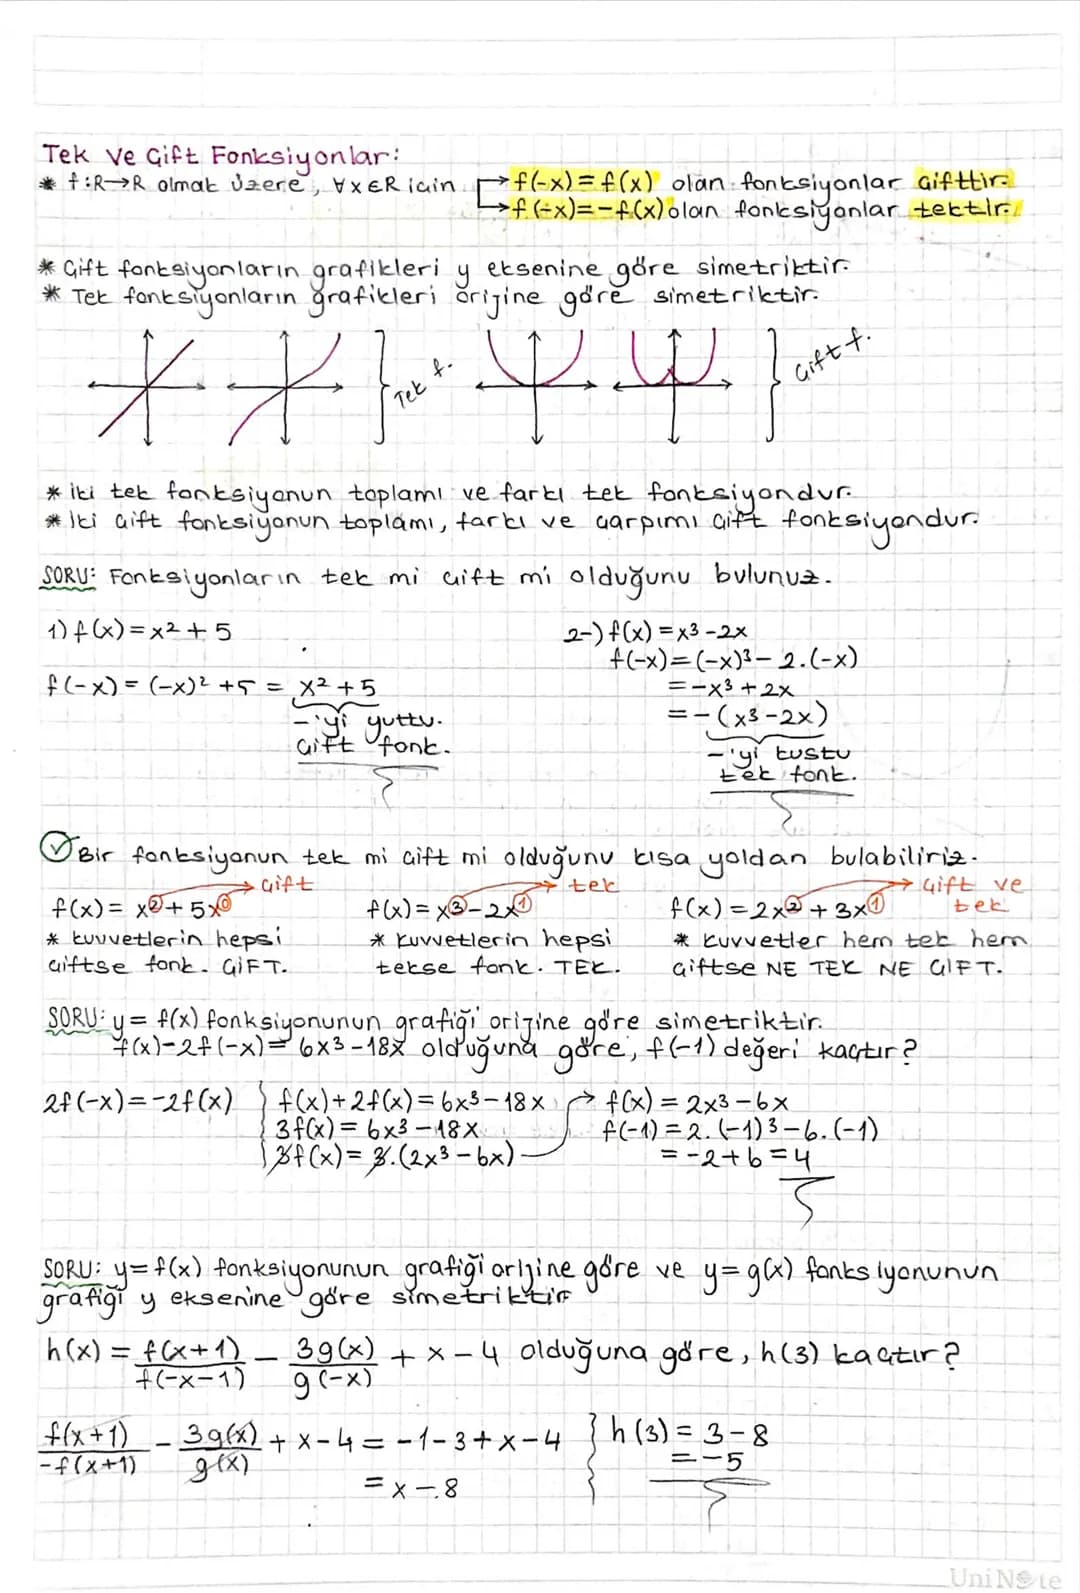 Tek ve Çift Fonksiyonlar:
* f:R→R olmak üzere, ∀x∈R için → f(-x) = f(x) olan fonksiyonlar çifttir.
→ f(-x) = -f(x) olan fonksiyonlar tektir.
* Çift fonksiyonların grafikleri y eksenine göre simetriktir.
* Tek fonksiyonların grafikleri orijine göre simetriktir.
Tek f.
Çift f.
* İki tek fonksiyonun toplamı ve farkı tek fonksiyondur.
* İki çift fonksiyonun toplamı, farkı ve çarpımı çift fonksiyondur.
SORU: Fonksiyonların tek mi çift mi olduğunu bulunuz.
1) f(x) = x² + 5
2-) f(x) = x³ - 2x
f(-x) = (-x)³ - 2.(-x)
f(-x) = (-x)² + 5 = x² + 5
= -x³ + 2x
= -(x³ - 2x)
-'yi yuttu.
çift fonk.
-'yi kustu
tek fonk.
Bir fonksiyonun tek mi çift mi olduğunu kısa yoldan bulabiliriz.
çift
tek
çift ve tek
f(x) = x² + 5x⁰
f(x) = x³ - 2x¹
f(x) = 2x² + 3x¹
* kuvvetlerin hepsi
çiftse fonk. ÇİFT.
* kuvvetlerin hepsi
tekse fonk. TEK.
* kuvvetler hem tek hem
çiftse NE TEK NE ÇİFT.
SORU: y = f(x) fonksiyonunun grafiği orijine göre simetriktir.
f(x) - 2f(-x) = 6x³ - 18x olduğuna göre, f(-1) değeri kaçtır?
2f(-x) = -2f(x)
f(x) + 2f(x) = 6x³ - 18x
3f(x) = 6x³ - 18x
3f(x) = 3.(2x³ - 6x)
→ f(x) = 2x³ - 6x
f(-1) = 2.(-1)³ - 6.(-1)
= -2 + 6 = 4
SORU: y = f(x) fonksiyonunun grafiği orijine göre ve y = g(x) fonksiyonunun
grafiği y eksenine göre simetriktir
h(x) = f(x+1)/f(-x-1) - 3g(x)/g(-x) + x - 4 olduğuna göre, h(3) kaçtır?
f(x+1)/-f(x+1) - 3g(x)/g(x) + x - 4 = -1 - 3 + x - 4
= x - 8
h(3) = 3 - 8
= -5
UniNote